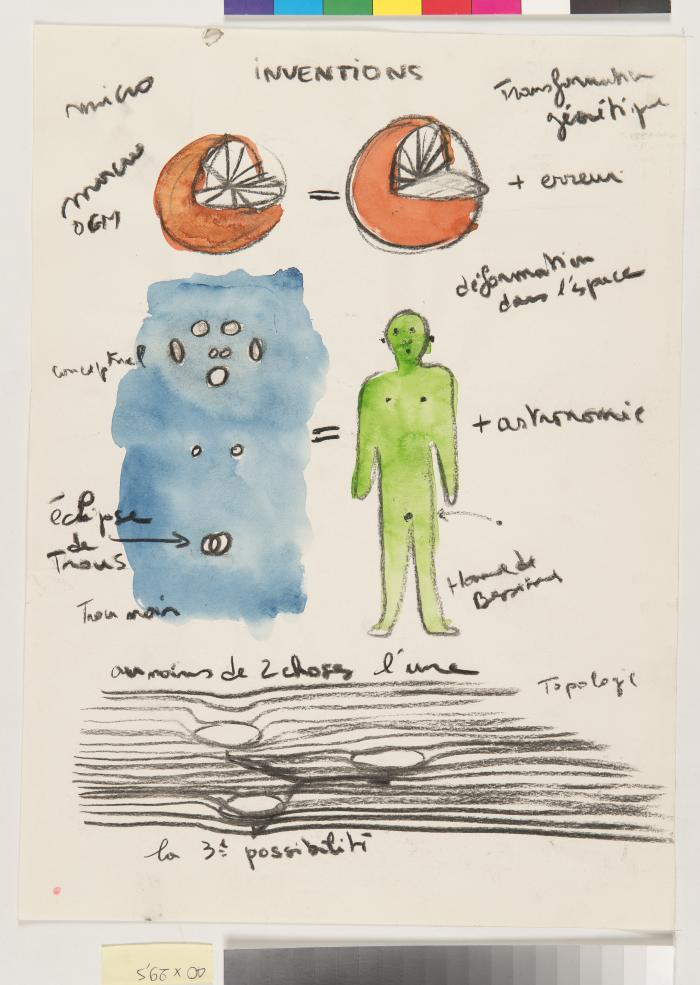 INVENTIONS
micro
Transformation
génétique
macro
OGM
=
+ erreur
déformation
dans l'espace
conceptuel
=
+ astronomie
éclipse
de
Trous
Trou noir
Homme de
au moins de 2 choses l'une
Topologie
la 3è possibilité
40 x 29,5